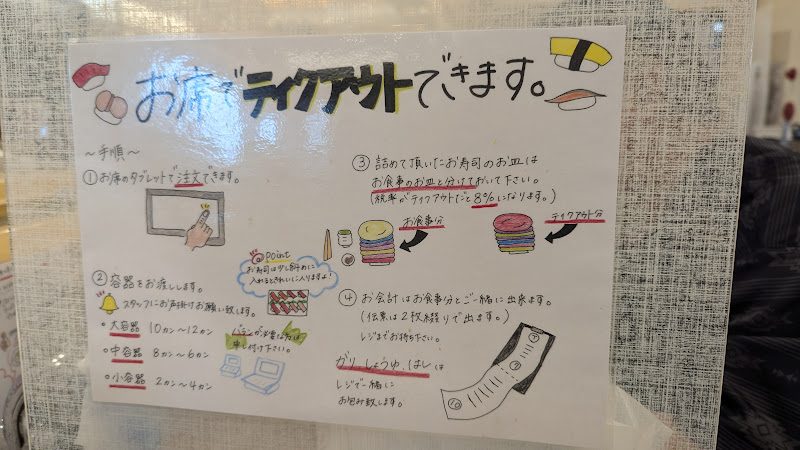 お席でテイクアウトできます。
〜手順〜
①お席のタブレットで注文できます。
②容器をお渡しします。
スタッフにお声掛けお願い致します。
point
お寿司は少し斜めに
入れるときれいに入りますよ!
・大容器 10カン〜12カン
・中容器 8カン〜6カン
・小容器 2カン〜4カン
バランが必要な方は
申し付け下さい。
③ 詰めて頂いたお寿司のお皿は
お食事のお皿と分けておいて下さい。
(税率がテイクアウトだと8%になります。)
お食事分
テイクアウト分
④ お会計はお食事分とご一緒に出来ます。
(伝票は2枚綴りで出ます。)
レジまでお持ち下さい。
ガリ、しょうゆ、はしは
レジで一緒に
お包み致します。